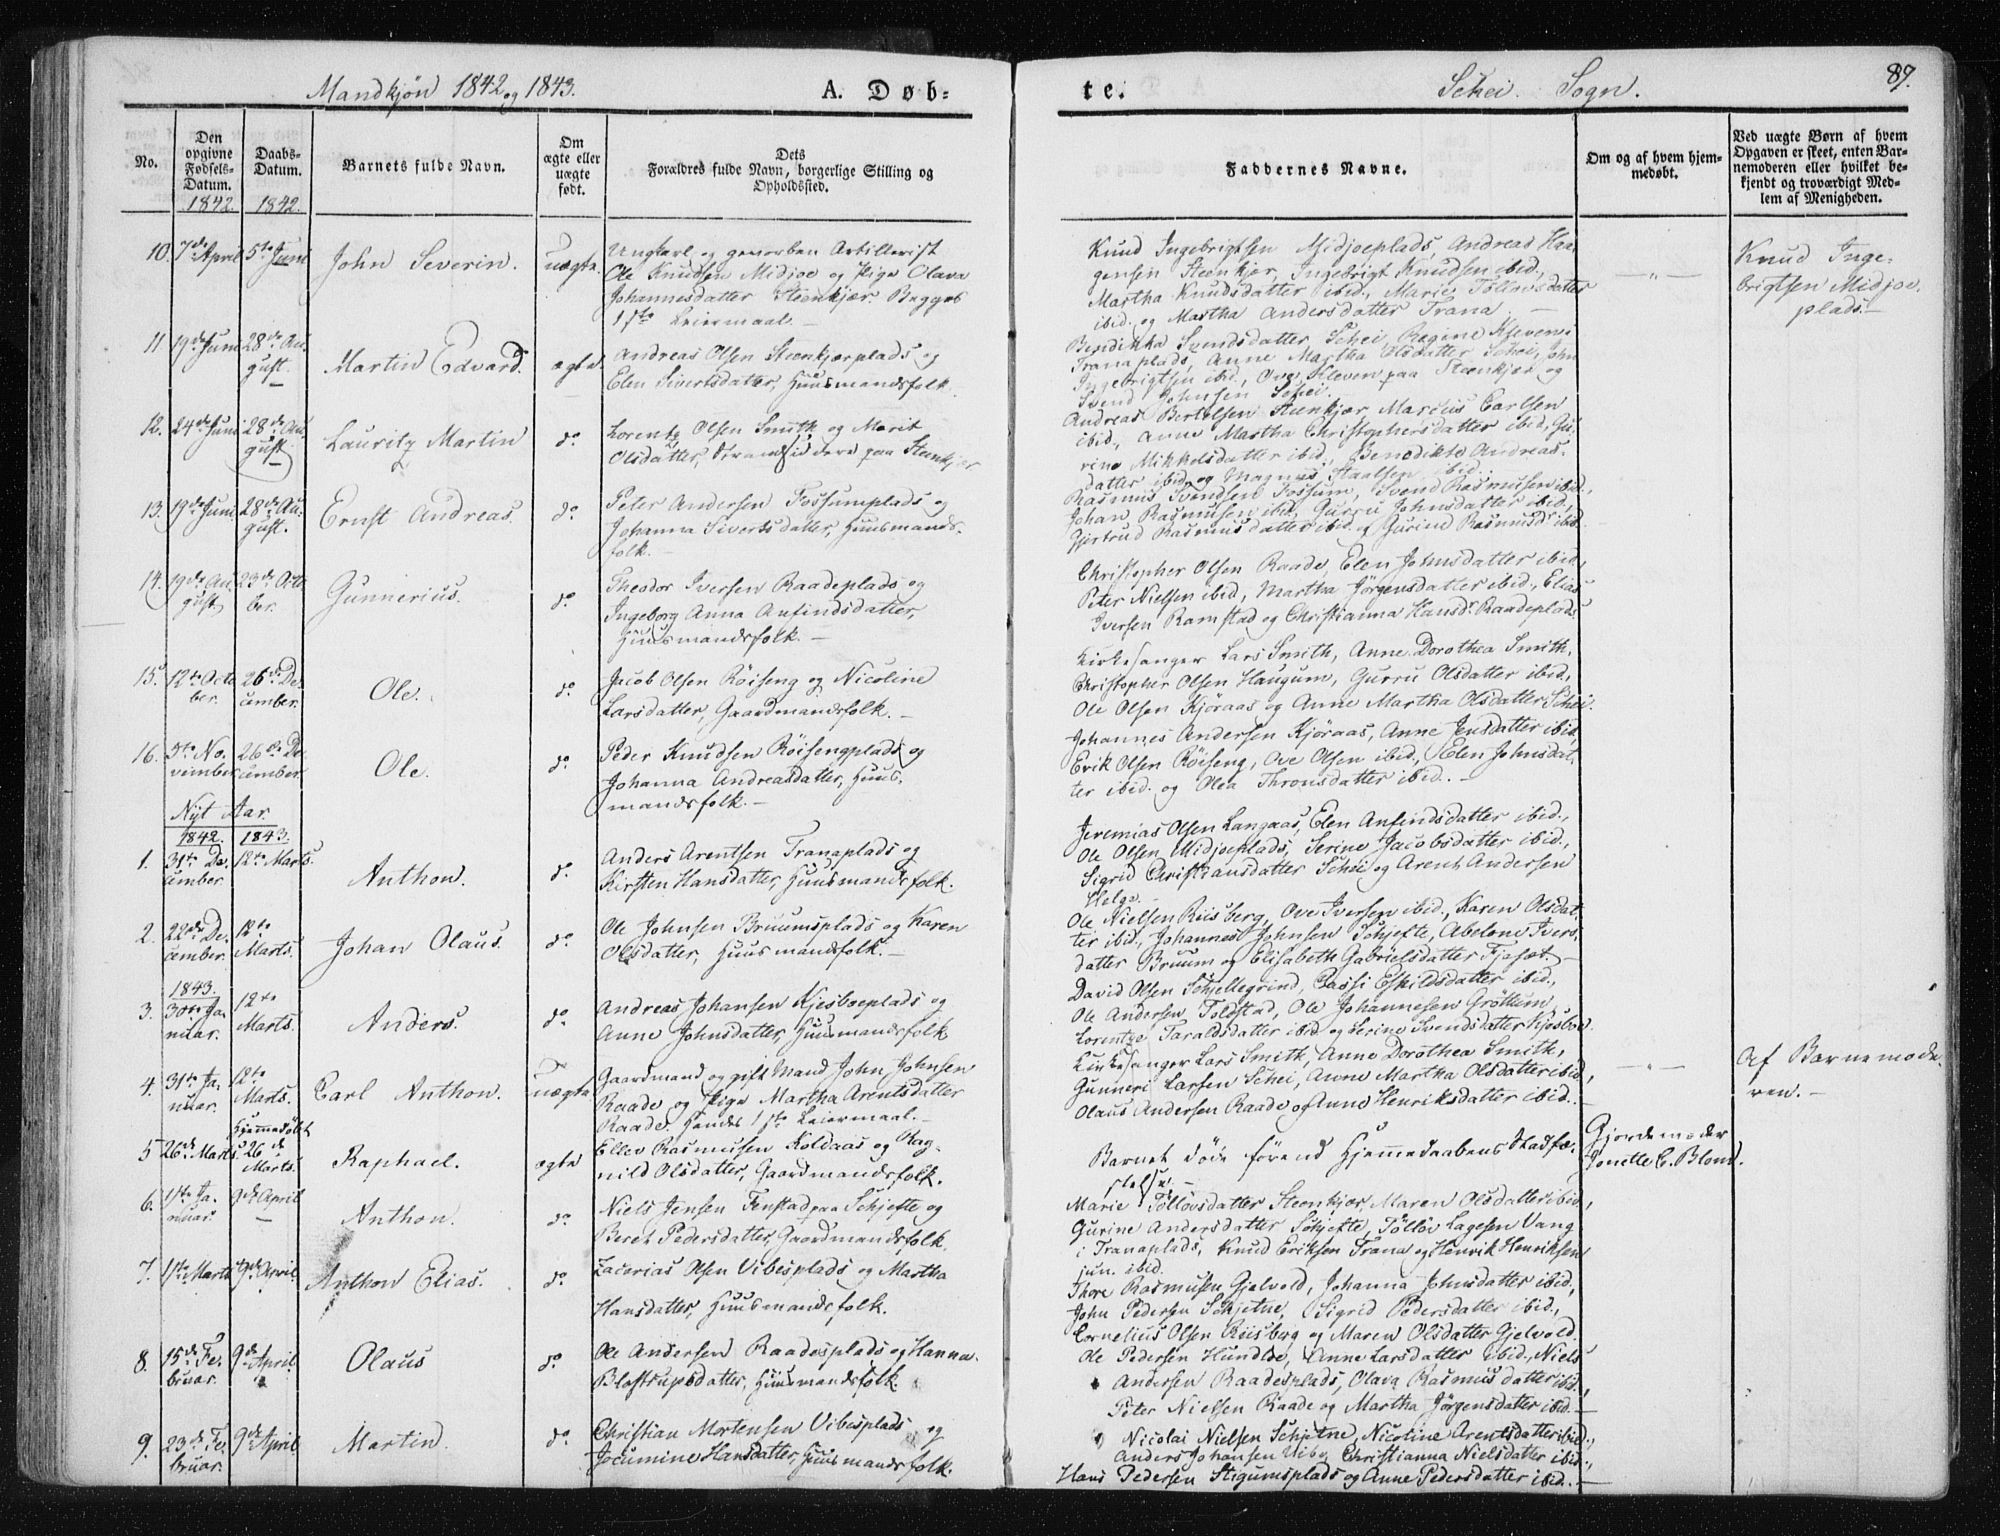 Mandkjøn 1842 og 1843.
A. Døb-
te.
Schei. Sogn.
89.
No.
Den opgivne Fødsels-Datum.
Daabs-Datum.
Barnets fulde Navn.
Om ægte eller uægte født.
Dets Forældres fulde Navn, borgerlige Stilling og Opholdssted.
Faddernes Navne.
Om og af hvem hjem-
medøbt.
Ved uægte Børn af hvem
Opgaven er skeet, enten Bar-
nemoderen eller hvilket be-
kjendt og troværdigt Med-
lem af Menigheden.
1842. 1842.
10. 7de April 5te Juni John Severin. Uægte.
Ungkarl og geworben Artillerist
Ole Knudsen Midjoe og Pige Olava
Johannesdatter Steenkjær Begges
1ste Leiermaal. –
Knud Ingebrigtsen Midjoeplads, Andreas Haa-
gensen Steenkjær, Ingebrigt Knudsen ibid.,
Martha Knudsdatter ibid., Marie Tølløvsdatter
ibid. og Martha Andersdatter Trana –
–"–
Knud Inge-
brigtsen Midjoe-
plads. –
11. 19de Juni 28de Au-
gust. Martin Edvard. ægte.
Andreas Olsen Steenkjærplads og
Elen Sivertsdatter, Huusmandsfolk.
Bendikka Svendsdatter Schei, Regine Kleven
Tranaplads, Anne Martha Olsdatter Schei, John
Ingebrigtsen ibid., Ove Kleven paa Steenkjær og
Svend Johnsen Schei.
12. 24de Juni 28de Au-
gust Lauritz Martin do.
Lorentz Olsen Smith og Marit
Olsdatter, Strandsiddere paa Steenkjær
Andreas Bertelsen Steenkjær, Marcus Carlsen
ibid., Anne Martha Christophersdatter ibid., Gu-
rine Mikkelsdatter ibid., Benedikte Andreas-
datter ibid. og Magnus Staalsen ibid.
13. 19de Juni 28de Au-
gust. Ernst Andreas. do.
Peter Andersen Fossumplads og
Johanna Sivertsdatter, Huusmands-
folk. –
Rasmus Svendsen Fossum, Svend Rasmusen ibid.,
Johan Rasmusen ibid., Gurru Johnsdatter ibid.,
Gjertrud Rasmusdatter ibid. og Gurine Rasmusdr ibid.
14. 19de Au-
gust 23de Octo-
ber. Gunnerius. do.
Theodor Iversen Raadeplads og
Ingeborg Anna Anfindsdatter,
Huusmandsfolk. –
Christopher Olsen Raade, Elen Johnsdatter ibid.,
Peter Nielsen ibid., Martha Jørgensdatter ibid., Elias
Iversen Ramstad og Christianna Hansdr Raadeplads.
15. 12te Octo-
ber. 26de De-
cember. Ole. do.
Jacob Olsen Røiseng og Nicoline
Larsdatter, Gaardmandsfolk. –
Kirkesanger Lars Smith, Anne Dorothea Smith,
Christopher Olsen Haugum, Gurru Olsdatter ibid.,
Ole Olsen Kjøraas og Anne Martha Olsdatter Schei.
16. 5te No-
vember 26de De-
cember. Ole. do.
Peder Knudsen Røisengplads og
Johanna Andreasdatter, Huus-
mandsfolk. –
Johannes Andersen Kjøraas, Anne Jensdatter ibid.,
Erik Olsen Røiseng, Ove Olsen ibid., Elen Johnsdat-
ter ibid. og Olea Thronsdatter ibid. –
Nyt Aar.
1842. 1843.
1. 31te De-
cember. 12te Marts. Anthon. do.
Anders Arentsen Tranaplads og
Kirsten Hansdatter, Huusmandsfolk.
Jeremias Olsen Langaas, Elen Anfindsdatter ibid.,
Ole Olsen Midjoeplads, Serine Jacobsdatter ibid.,
Sigrid Christiansdatter Schei og Arent Andersen
Helge. –
2. 22de De-
cember. 12te
Marts. Johan Olaus. do.
Ole Johnsen Bruumsplads og Karen
Olsdatter, Huusmandsfolk. –
Ole Nielsen Riisberg, Ove Iversen ibid., Karen Olsdat-
ter ibid., Johannes Johnsen Schjefte, Abelone Ivers-
datter Bruum og Elisabeth Gabrielsdatter Fjesæt. –
1843.
3. 30te Ja-
nuar. 12te
Marts. Anders. do.
Andreas Johansen Kjesboeplads og
Anne Johnsdatter, Huusmandsfolk
David Olsen Schjellegrind, Passi Eskildsdatter ibid.,
Ole Andersen Foldstad, Ole Johannesen Grøttem,
Lorentze Taraldsdatter ibid. og Serine Svendsdatter Kjosboe.
4. 31te Ja-
nuar. 12te
Marts. Carl Anthon. Uægte
Gaardmand og gift Mand John Johnsen
Raade og Pige Martha Arentsdatter
Raade. Hendes 1ste Leiermaal. –
Kirkesanger Lars Smith, Anne Dorothea Smith,
Gunneri Larsen Schei, Anne Martha Olsdatter ibid.,
Olaus Andersen Raade og Anne Henriksdatter ibid. –
–"–
Af Barnemode-
ren. –
5 26de Marts Hjemmedøbt
26de
Marts. Raphael. ægte
Ellev Rasmusen Koldaas og Rag-
nild Olsdatter, Gaardmandsfolk.
Barnet døde førend Hjemmedaabens Stadfæ-
stelse. –
Gjordemoder
Jonette C. Blom.
6. 1ste Ja-
nuar. 9de April
– Anthon. do.
Niels Jensen Fenstad paa Schjefte og
Beret Pedersdatter, Gaardmandsfolk.
Marie Tølløvsdatter Steenkjær, Maren Olsdatter ibid.,
Gurine Andersdatter Schjefte, Tølløv Lagesen Vang
i Tranaplads, Knud Eriksen Trana og Henrik Henriksen
jun. ibid.
7. 1ste Marts 9de April. Anthon Elias. do.
Zacarias Olsen Vibesplads og Martha
Hansdatter, Huusmandsfolk.
Thore Rasmusen Gjelvold, Johanna Johnsdatter ibid.,
John Pedersen Schjetne, Sigrid Pedersdatter ibid.,
Cornelius Olsen Riisberg og Maren Olsdatter Gjelvold.
8. 15de Fe-
bruar. 9de April Olaus do.
Ole Andersen Raadesplads og Hanna
Blostrupsdatter, Huusmandsfolk.
Ole Pedersen Hundlde, Anne Larsdatter ibid., Niels
Andersen Raadesplads, Olava Rasmusdatter ibid.,
Peter Nielsen Raade og Martha Jørgensdatter ibid. –
9. 23de Fe-
bruar. 9de April Martin. do.
Christian Mortensen Vibesplads og
Jocumine Hansdatter, Huusmandsfolk.
Nicolai Nielsen Schjetne, Nicoline Arentsdatter ibid.,
Anders Johansen Vibe, Christianna Nielsdatter ibid.,
Hans Pedersen Stigumsplads og Anne Pedersdatter ibid. –